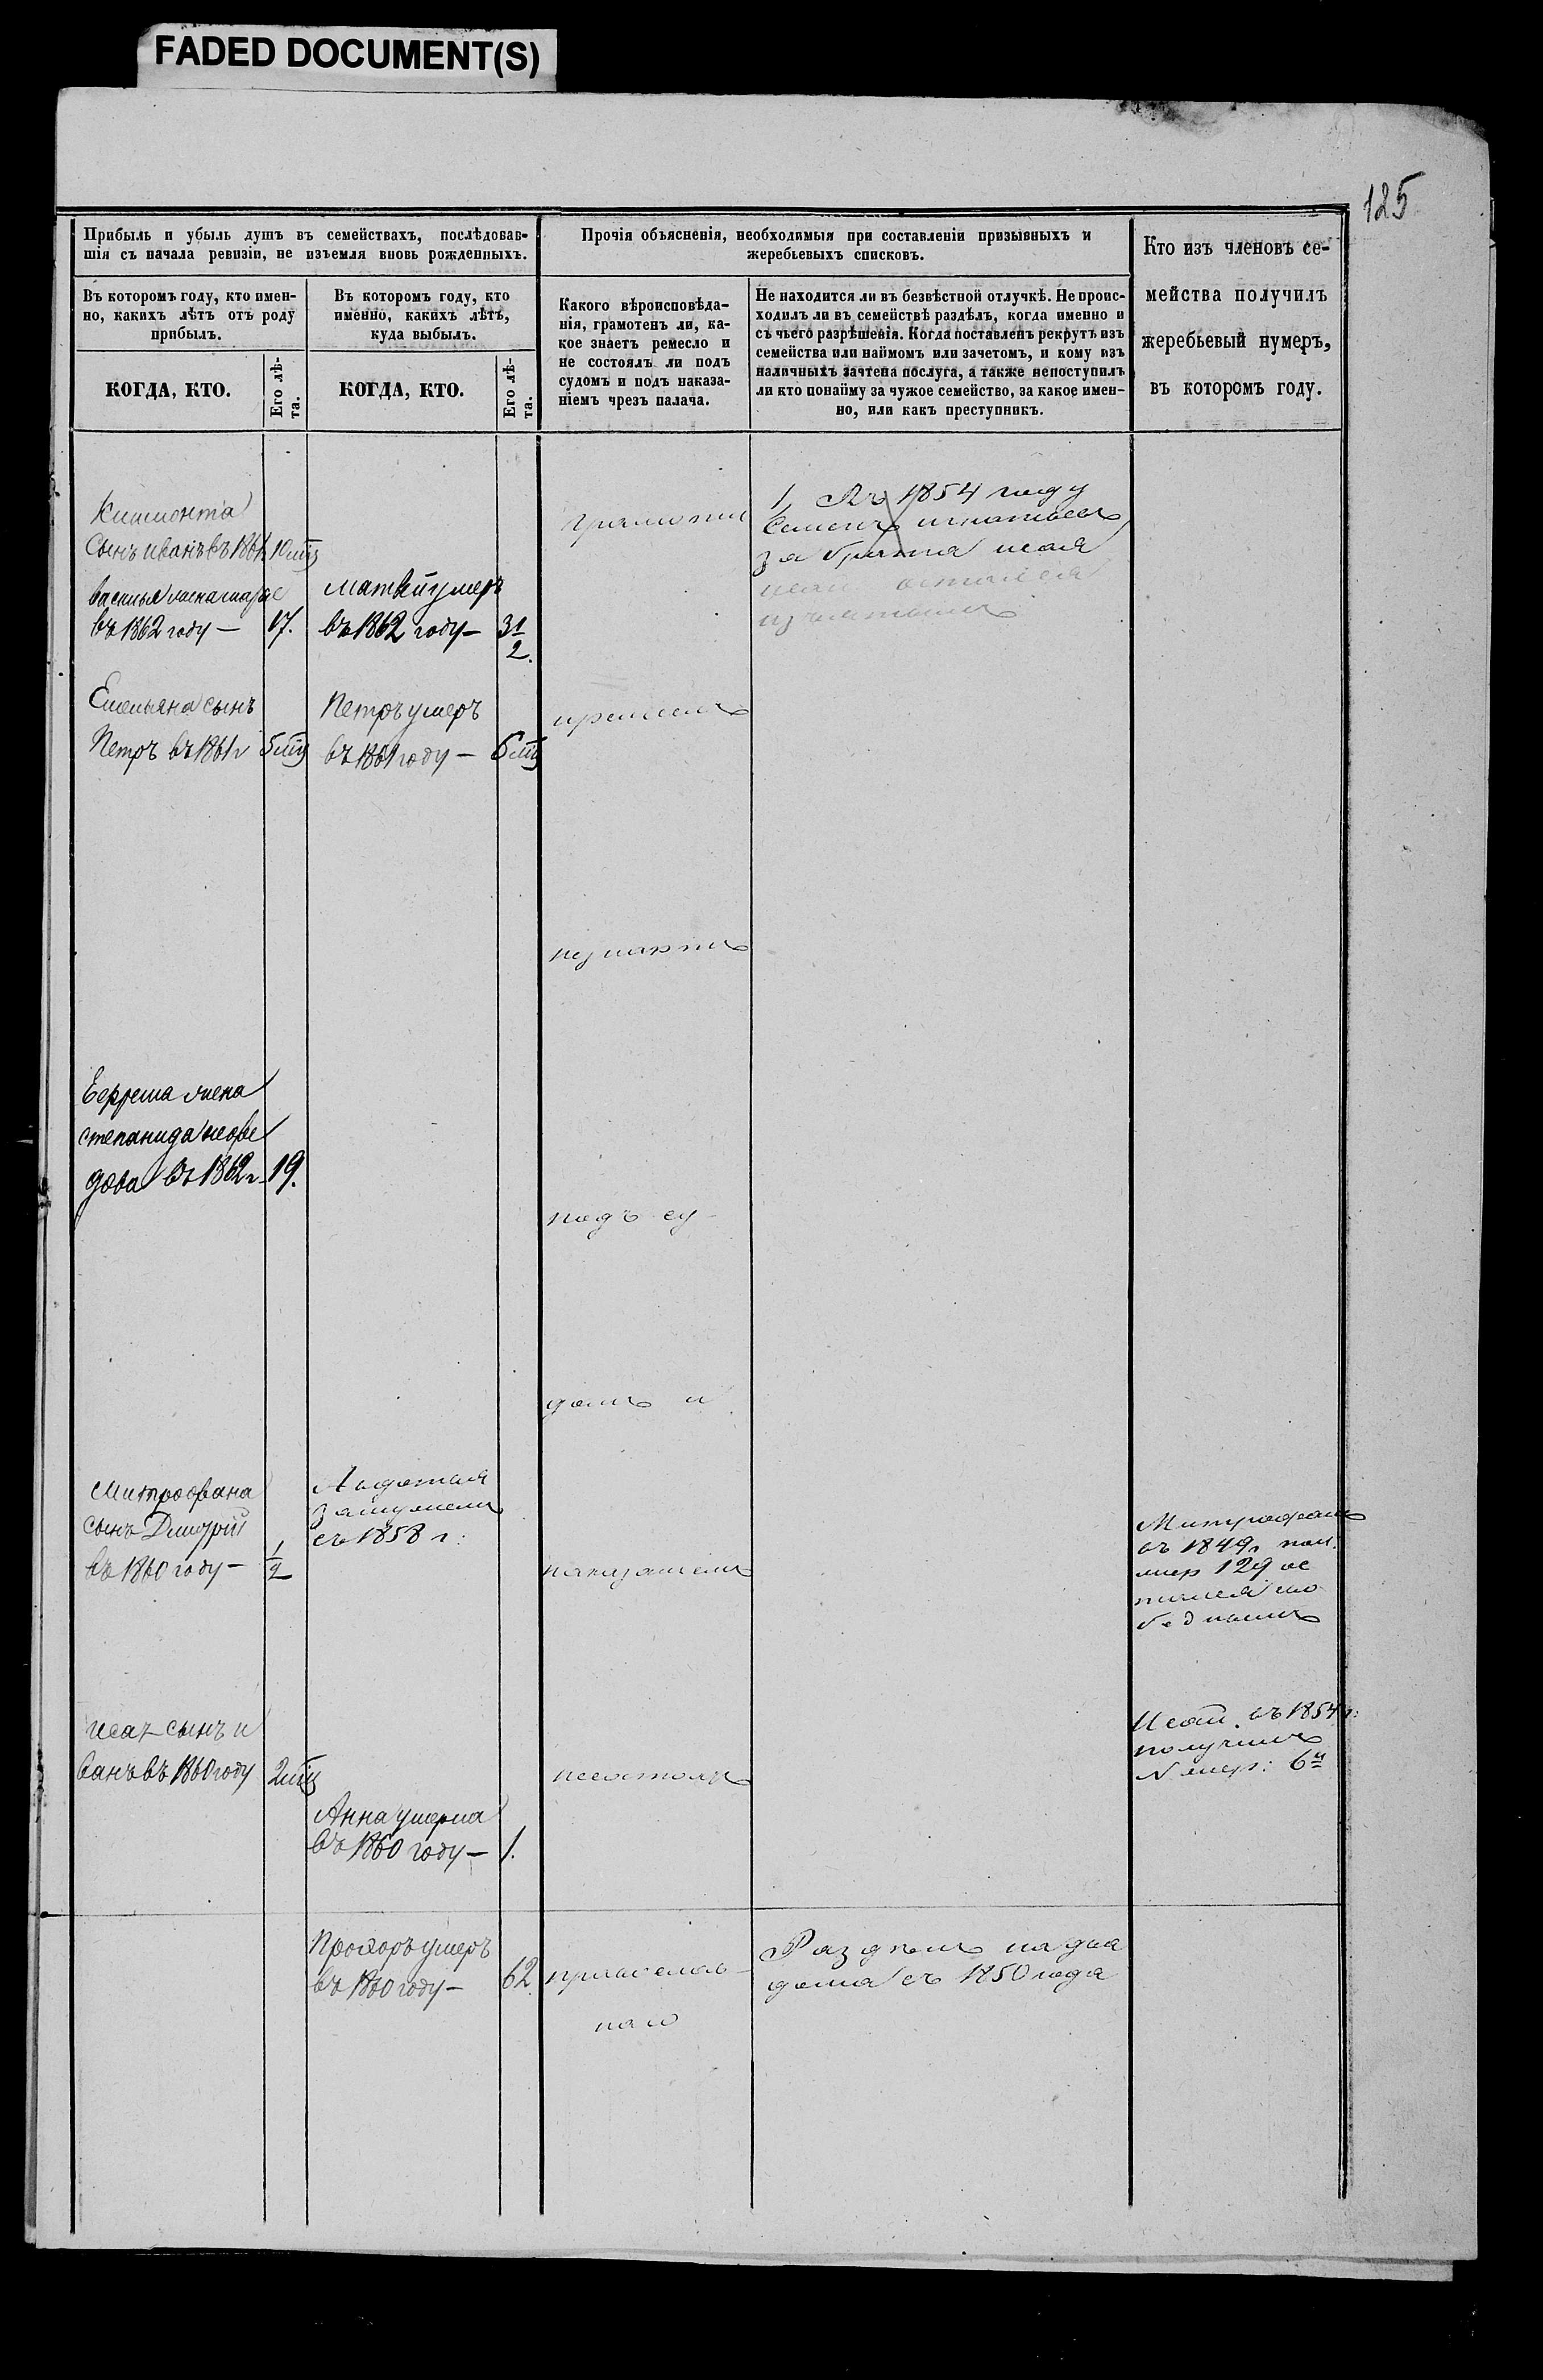 FADED DOCUMENT(S)
125
Прибыль и убыль душъ въ семействахъ, послѣдовав-
шія съ начала ревизіи, не изъемля вновь рожденныхъ.
Прочія объясненія, необходимыя при составленіи призывныхъ и
жеребьевыхъ списковъ.
Кто изъ членовъ се-
мейства получилъ
жеребьевый нумеръ,
въ которомъ году.
Въ которомъ году, кто имен-
но, какихъ лѣтъ отъ роду
прибылъ.
Въ которомъ году, кто
именно, какихъ лѣтъ,
куда выбылъ.
Какого вѣроисповѣда-
нія, грамотенъ ли, ка-
кое знаетъ ремесло и
не состоялъ ли подъ
судомъ и подъ наказа-
ніемъ чрезъ палача.
Не находится ли въ безвѣстной отлучкѣ. Не проис-
ходилъ ли въ семействѣ раздѣлъ, когда именно и
съ чьего разрѣшенія. Когда поставленъ рекрутъ изъ
семейства или наймомъ или зачетомъ, и кому изъ
наличныхъ зачтена послуга, а также непоступилъ
ли кто понайму за чужое семейство, за какое имен-
но, или какъ преступникъ.
КОГДА, КТО.
Его лѣ-
та.
КОГДА, КТО.
Его лѣ-
та.
Сынъ иванъ въ 1861
въ 1862 году — 17.
матвѣй умеръ
въ 1862 году — 3 1/2.
грамоти
1, Въ 1854 году
Семенъ игнатьевъ
за брата исая
Емельяна сынъ
Петръ въ 1861 г 5 мцъ
Петръ умеръ
въ 1861 году — 6 мцъ
ремесла
незнаетъ
жена
степанида нефе
дова въ 1862 г. 19.
подъ су-
домъ и
Митрофана
сынъ Дмитрій
въ 1860 году — 1/2
Авдотья
замужемъ
съ 1858 г:
наказаніемъ
Митрофанъ
въ 1849 г
129 ос
тался
исая сынъ и
ванъ въ 1860 году 2 мцъ
Анна умерла
въ 1860 году — 1.
несостоялъ
Исай въ 1854 г:
получилъ
Nмер: 6й
Прохоръ умеръ
въ 1860 году — 62.
православ-
наго
Раздѣлъ на два
дома съ 1850 года